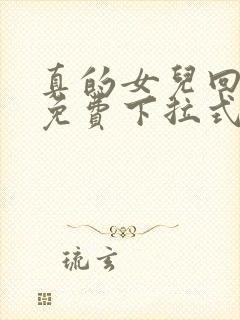 真的女兒回
免費下拉式
琉玄